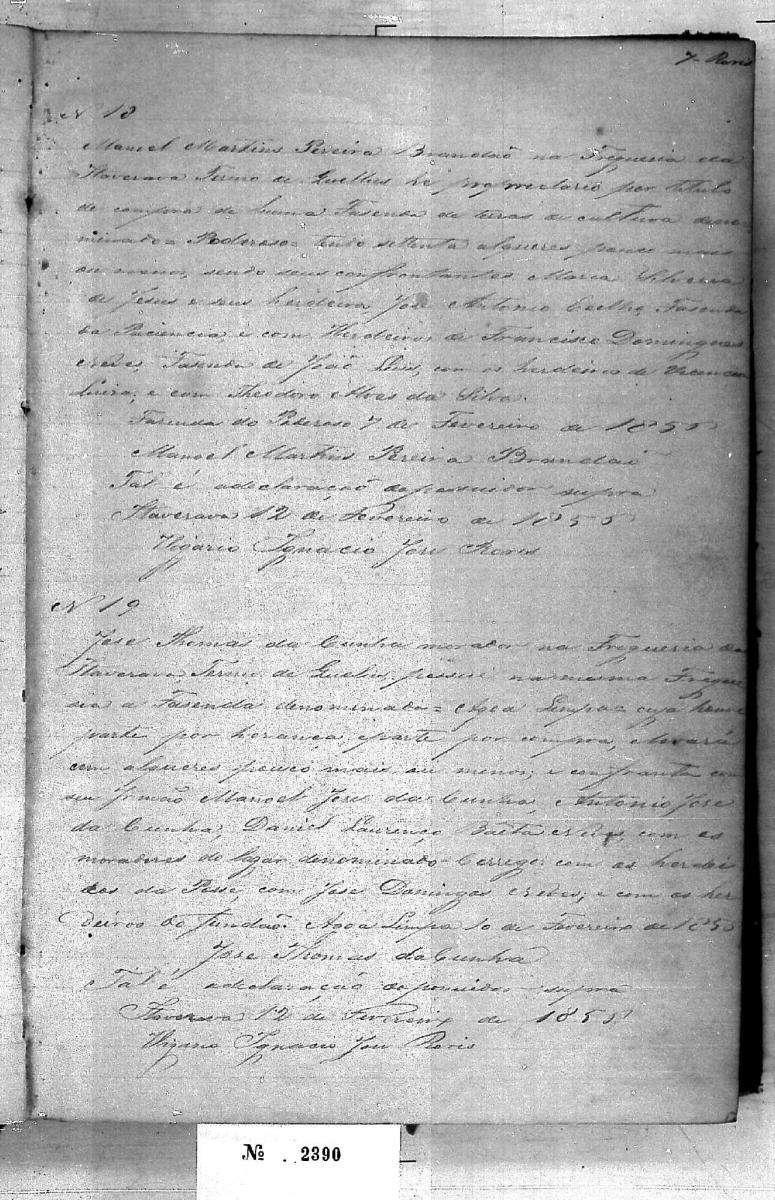 7- Roris
N 18
Manoel Martins Pereira Brandaõ na Freguesia da
Itaverava Termo de Quelus he proprietario por titulo
de compra de huma Fasenda de terras de cultura deno-
minada= Poderoso= tendo settenta alqueres pouco mais
ou menos, sendo seus confrontantes Maria Silveria
de Jesus e seus herdeiros José Antonio Coelho, Fasenda
da Paciencia, e com Herdeiros de Francisco Domingues
Fasenda de Joaõ com os herdeiros de
e com Theodoro Alves da Silva.
Fazenda do Poderoso 7 de Fevereiro de 1855
Manoel Martins Pereira Brandaõ
Tal é adeclaraçaõ dopossuidor supra
Itaverava 12 de Fevereiro de 1855
Vigario Ignacio Jose Roris
N 19
Jose Thomas da Cunha morador na Freguesia da
Itaverava Termo de Quelus, possue na mesma Fregue
sia a Fasenda denominada= Agoa Limpa= cuja houve
parte por herança, eparte por compra, elevará
cem alqueres pouco mais ou menos; e confronta com
seu Irmão Manoel Jose da Cunha, Antonio Jose
da Cunha, Daniel Lourenço Baeta com os
moradores do lugar denominado Corrego; com os herdei
ros da Posse, com Jose Domingos e com os her
deiros do fundaõ. Agoa Limpa 10 de Fevereiro de 1855
Jose Thomas da Cunha
Tal é adeclaraçaõ dopossuidor supra
Itaverava 12 de Fevereiro de 1855
Vigario Ignacio Jose Roris
№ . 2390